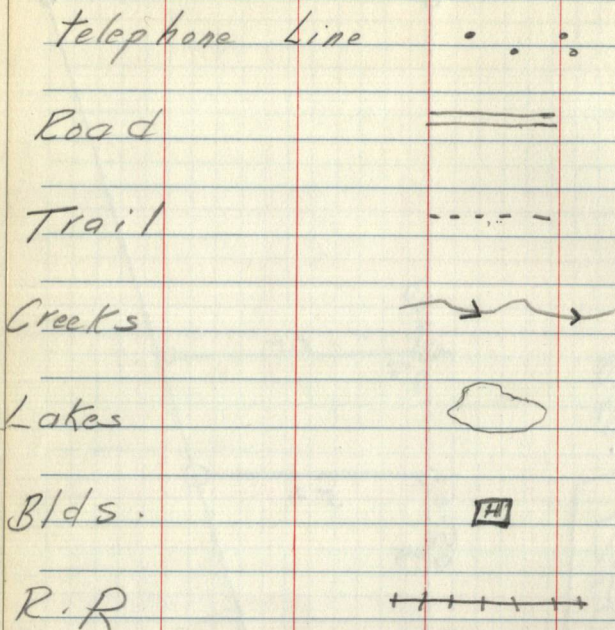 telephone Line
Road
Trail
Creeks
Lakes
Blds.
R.R